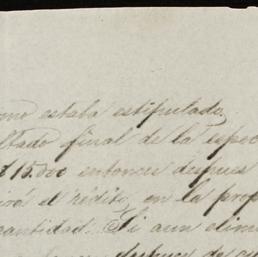 mo estaba estipulado.
ltado final de la espec
$15.000 entonces despues
irá el rédito, en la prop
cantidad. Si aun elim
despues de